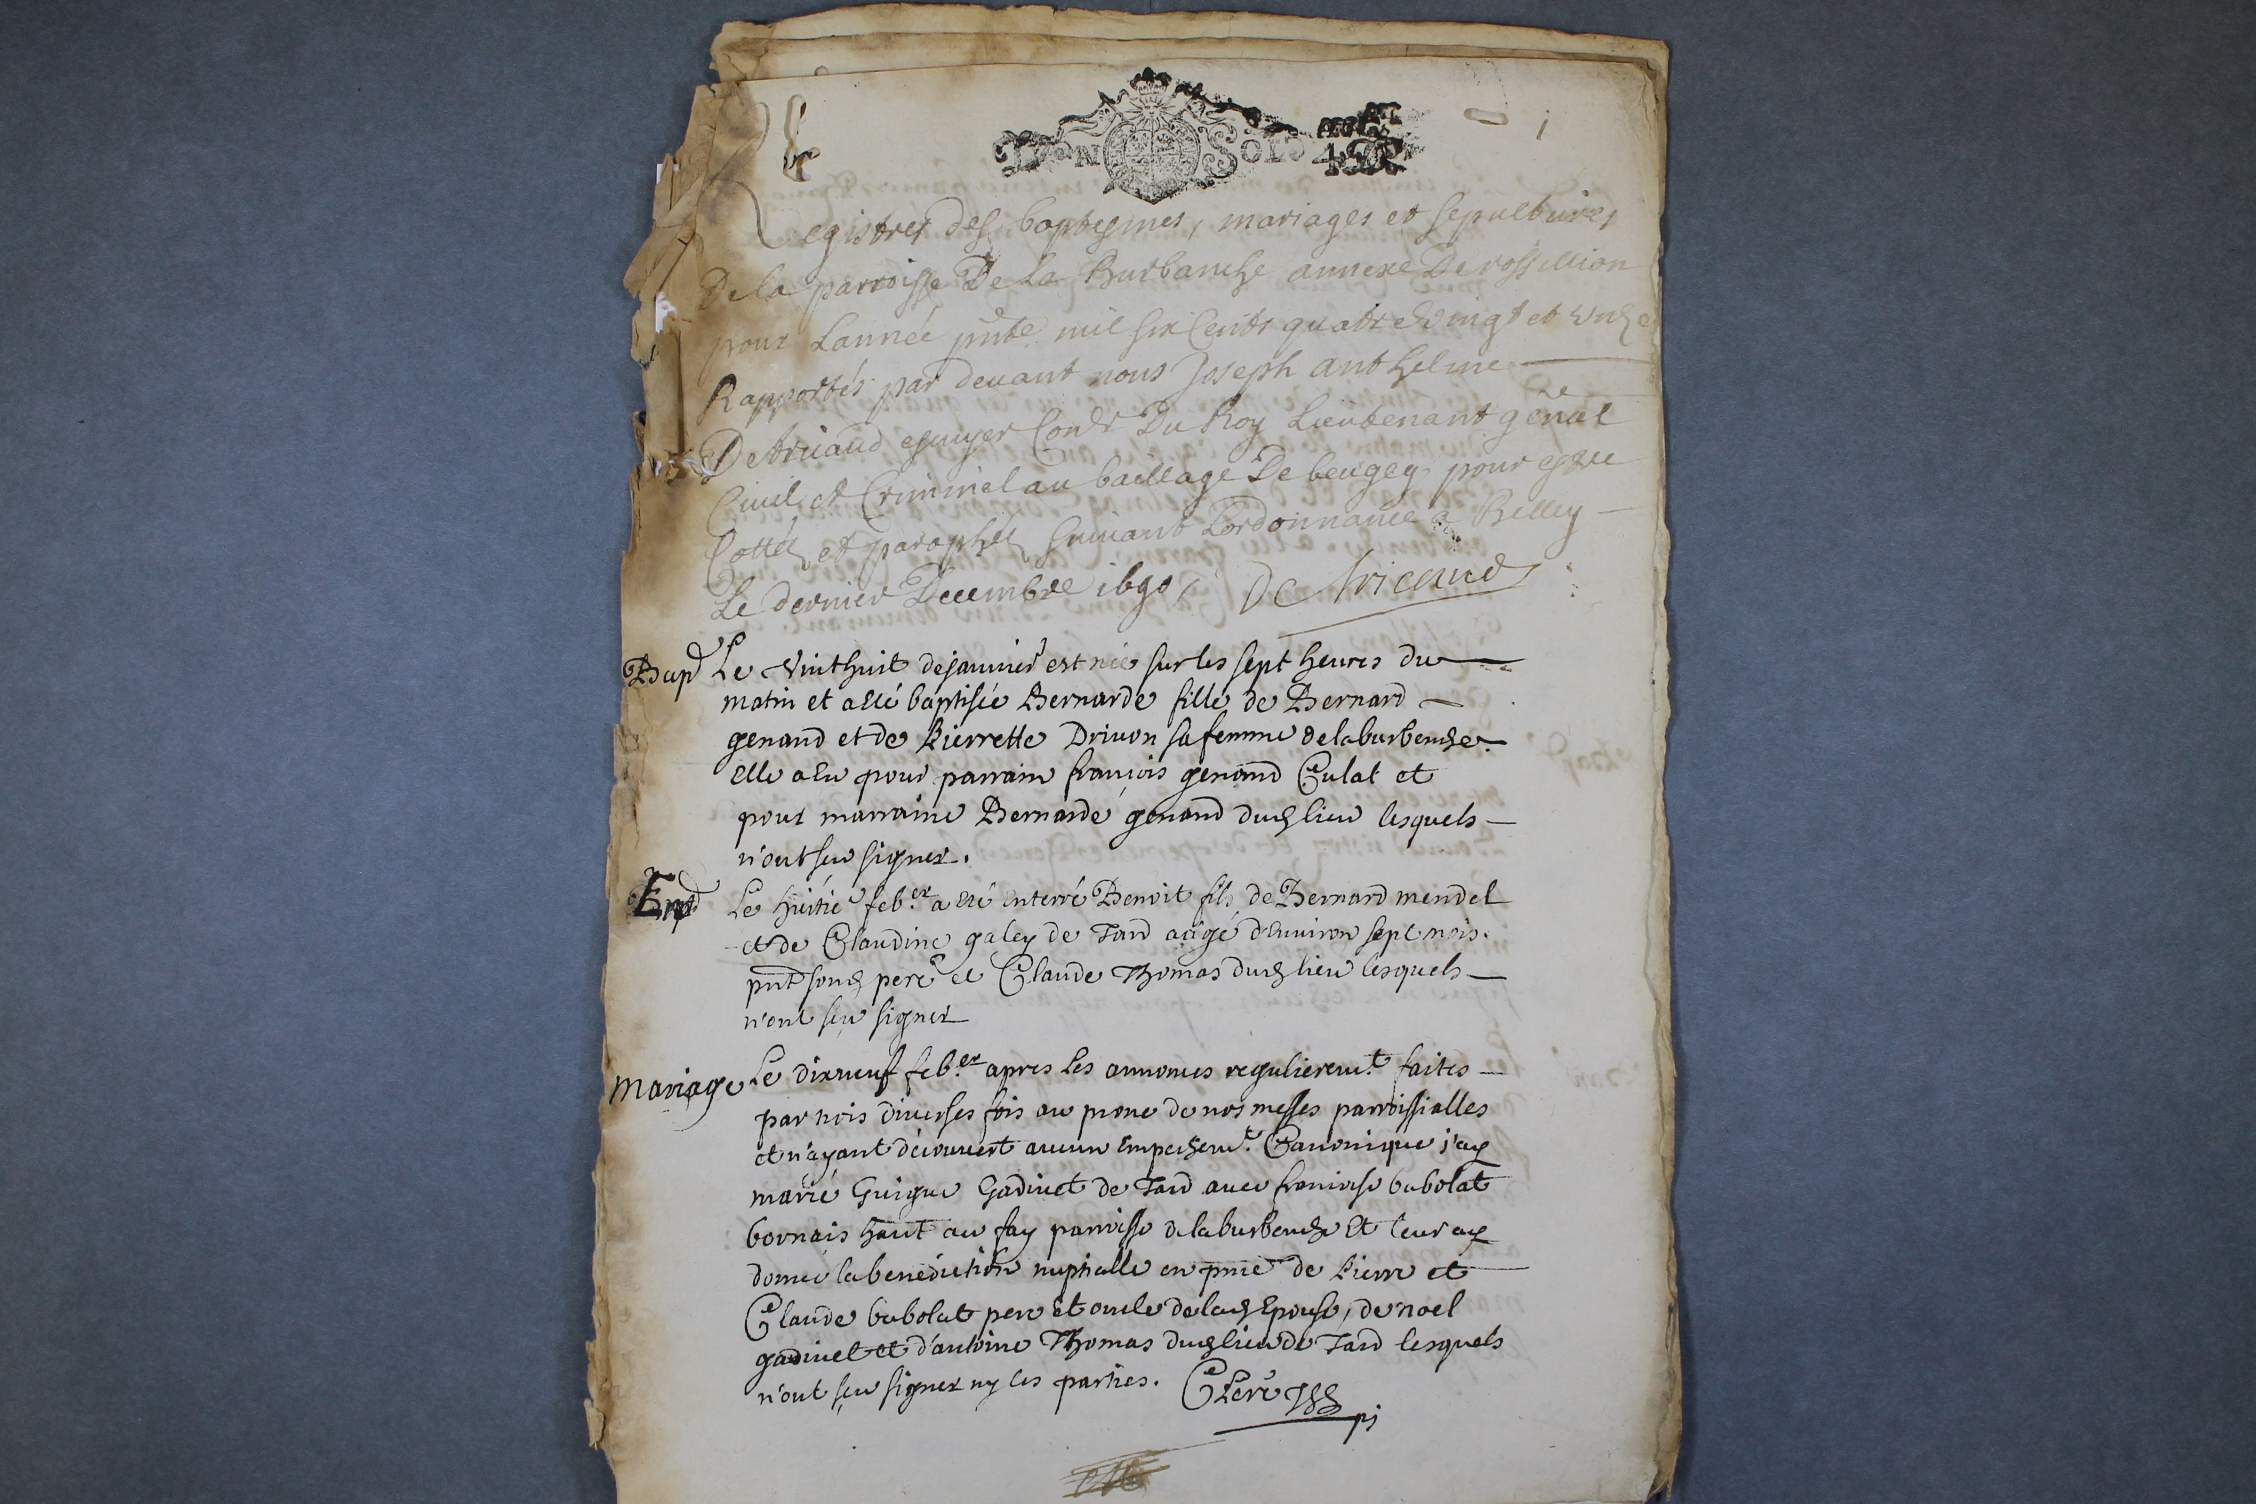 1
Registres des baptesmes, mariages et sepultures
De la parroisse De La Burbanche annexe De rossillion
pour L'année pnte mil six Cents quatre Vingt et unze
Rapportés par devant nous Joseph anthelme
De Tricaud escuyer Conr Du Roy Lieutenant genal
Civil et Criminel au bailliage De beugey pour estre
Cottés et paraphés suivant L'ordonnance a Belley
Le dernier Decembre 1690, De Tricaud
Bap Le Vinthuit de janvier est née sur les sept heures du
matin et a esté baptisée Bernarde fille de Bernard
genand et de Pierrette Drivon sa femme de la burbenche
elle a eu pour parrain françois genand Culat et
pour marraine Bernarde genand dud lieu lesquels
n'ont seu signer.
Ent Le huitie feb.er a esté enterré Benoit fils de Bernard mendel
et de Claudine galey de Tard aagé d'environ sept mois.
pnt sond pere et Claude Thomas dud lieu lesquels
n'ont seu signer
Mariage Le dixneuf feb.er apres les annonces regulierem.t faites
par trois diverses fois au prone de nos messes parroissialles
et n'ayant découvert aucun empechem.t Canonique j'ay
marié Guigue Gadivet de Tard avec françoise bubolat
bornais haut au fay parroisse de la burbenche et leur ay
donné la benediction nuptialle en pnce de Pierre et
Claude bubolat pere et oncle de lad Epouse, de noel
gadivet et d'antoine Thomas dud lieu de Tard lesquels
n'ont seu signer ny les parties. Clerc